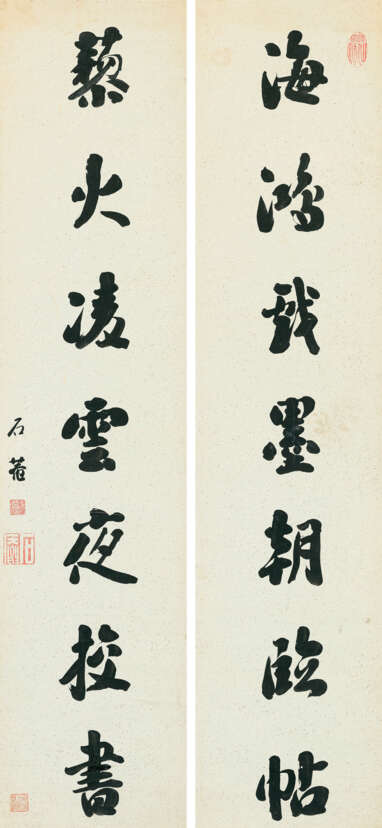 海鸿戏墨朝临帖
藜火凌雲夜校書
石菴